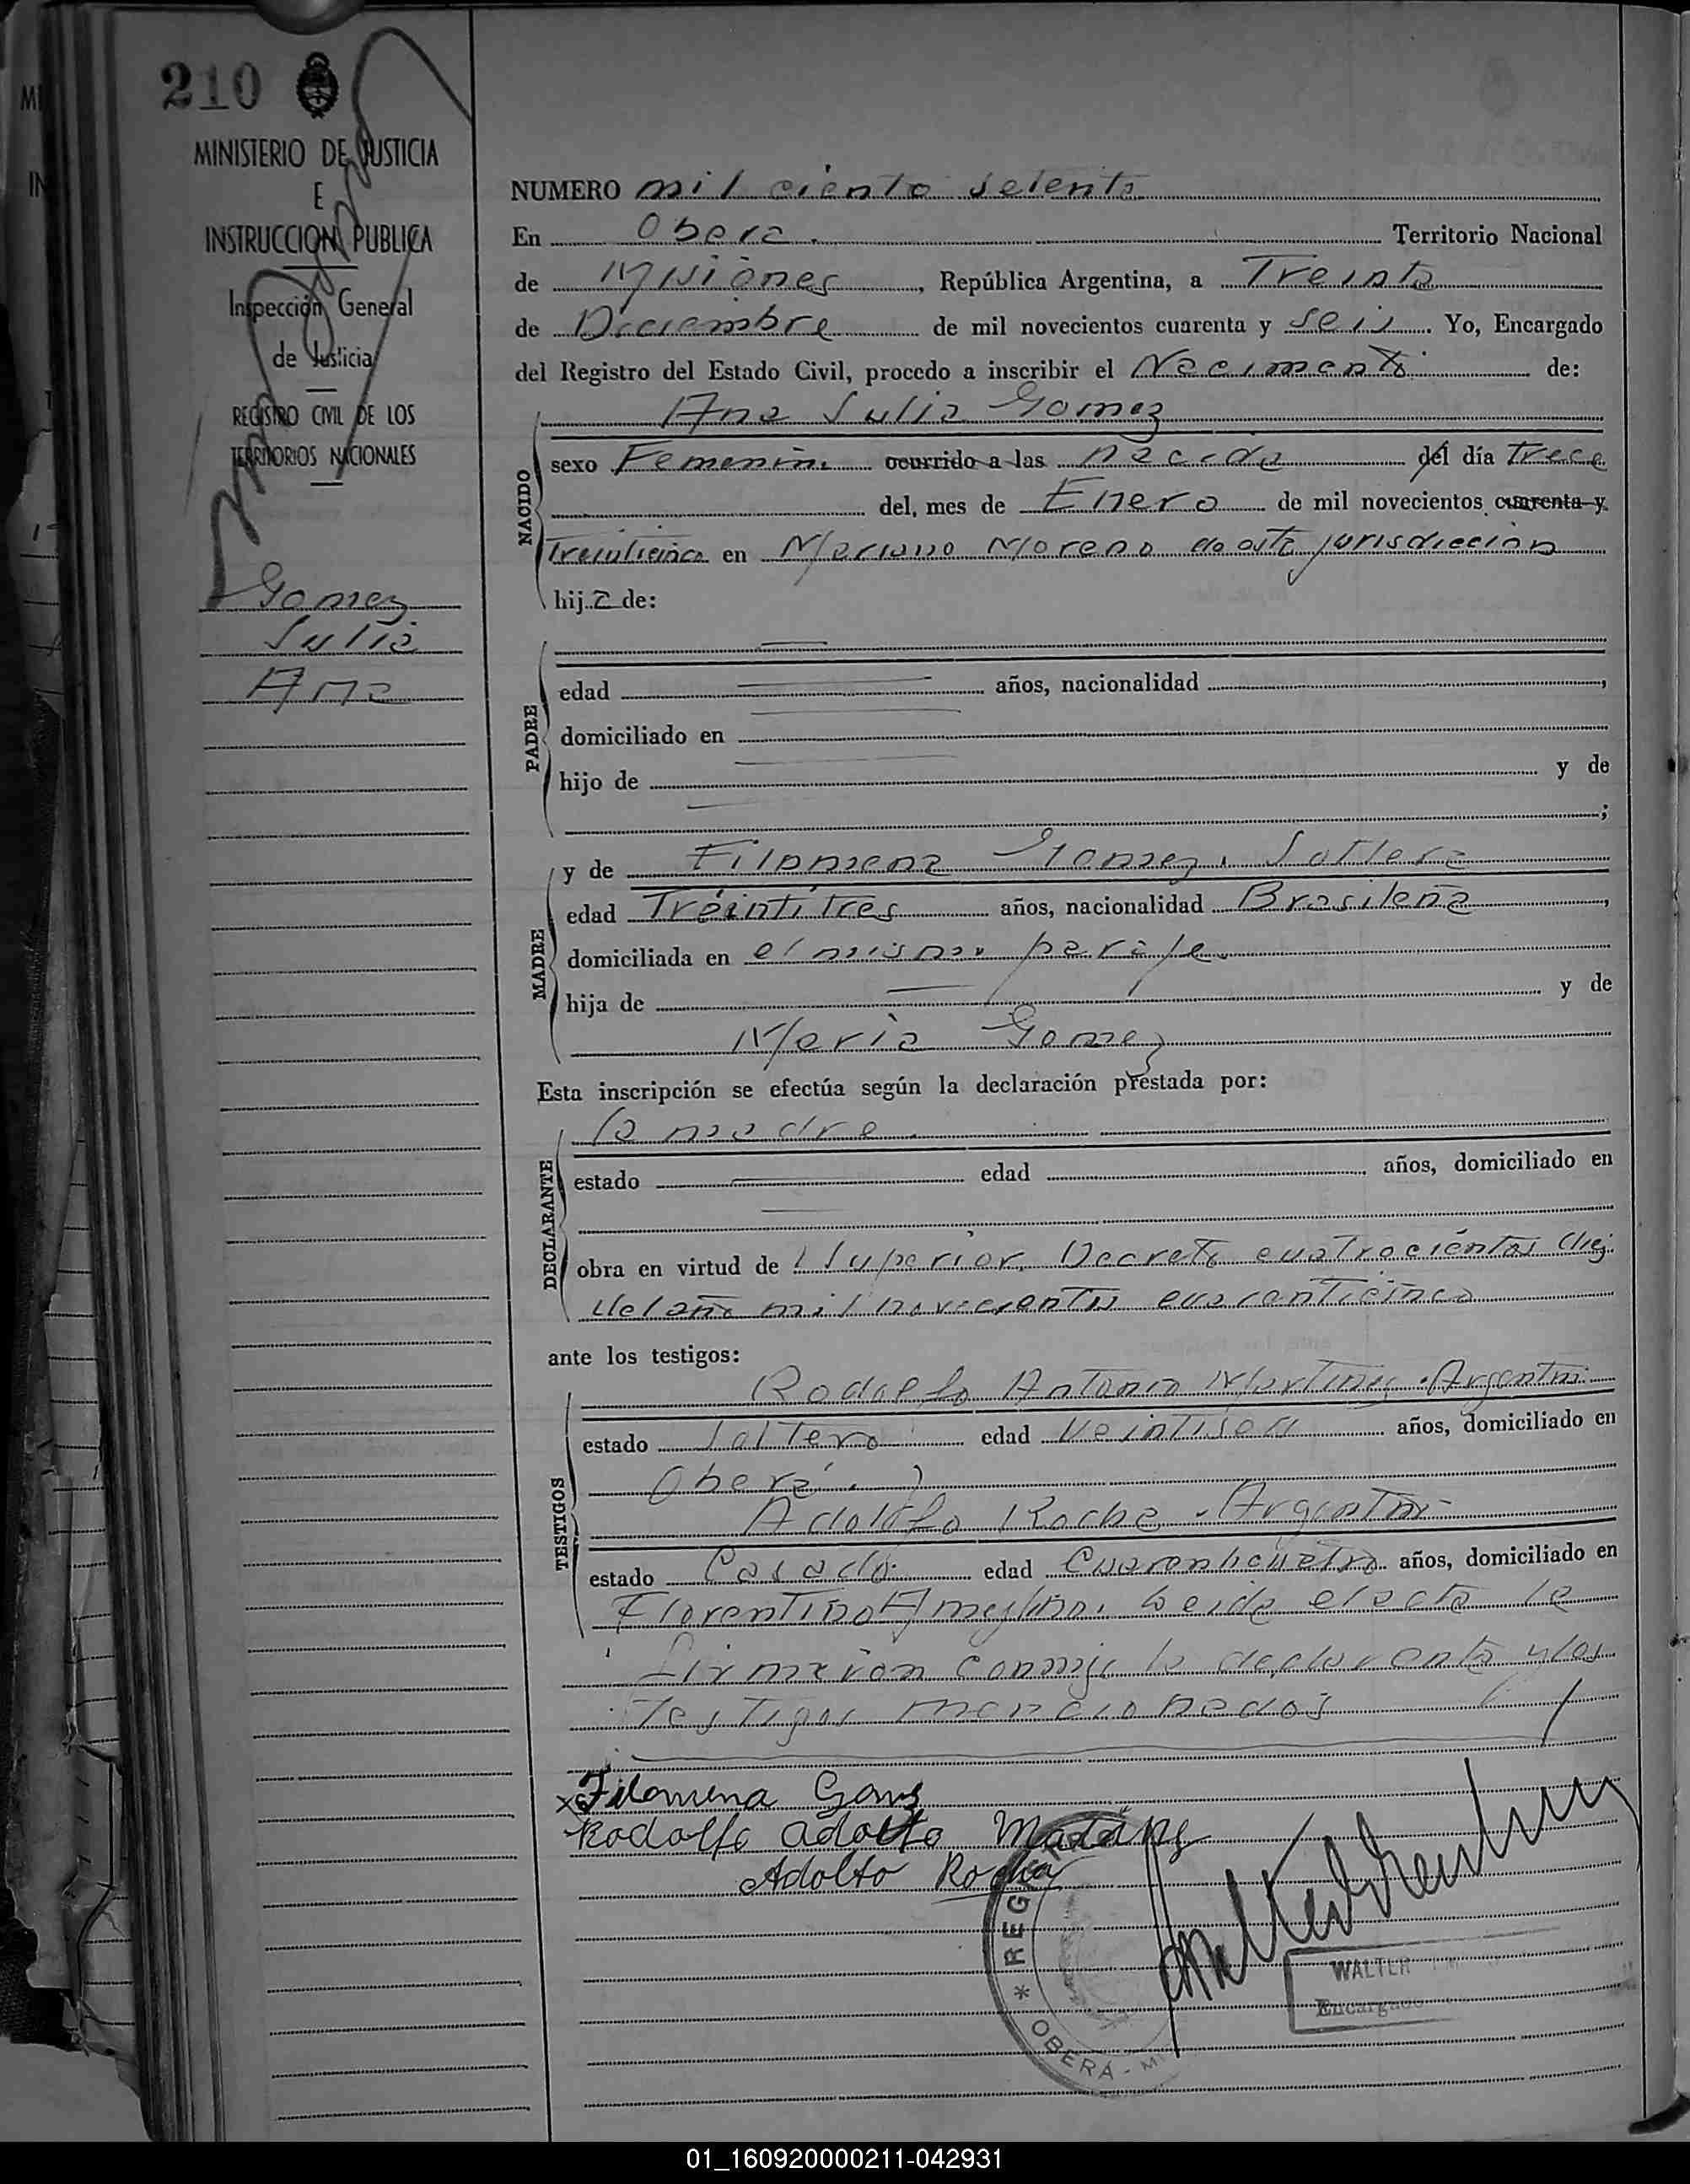 210
MINISTERIO DE JUSTICIA
E
INSTRUCCION PUBLICA
Inspección General
de Justicia
REGISTRO CIVIL DE LOS
TERRITORIOS NACIONALES
Gomez
Julia
Ana
NUMERO mil ciento setenta
En Obera. Territorio Nacional
de Misiones, República Argentina, a Treinta
de Diciembre de mil novecientos cuarenta y seis. Yo, Encargado
del Registro del Estado Civil, procedo a inscribir el Nacimento de:
Ana Julia Gomez
NACIDO
sexo Femenin. ocurrido a las nacida del día Trece
del mes de Enero de mil novecientos cuarenta y
Treinticinco en Mariano Moreno de esta jurisdiccion
hija de:
PADRE
edad años, nacionalidad ,
domiciliado en
hijo de y de
;
MADRE
y de Filomena Gomez. Soltera
edad Treintitres años, nacionalidad Brasileña ,
domiciliada en el mismo paraje.
hija de y de
Maria Gomez
Esta inscripción se efectúa según la declaración prestada por:
la madre.
DECLARANTE
estado edad años, domiciliado en
obra en virtud de Superior Decreto cuatrocientos diez
del año mil novecientos cuarenticinco
ante los testigos:
TESTIGOS
Rodolfo Antonio Martinez. Argentin
estado Soltero edad Veintiseis años, domiciliado en
Oberá.
Adolfo Rocha. Argentin
estado Casado. edad Cuarenticuatro años, domiciliado en
Florentino Ameghino. Leida el acta la
firmaron conmigo la declarante y los
testigos mencionados
x Filomena Gomz
Rodolfo Martinz
Adolfo Rocha
* REG
OBERÁ - M
WALTER
Encargado
01_160920000211-042931